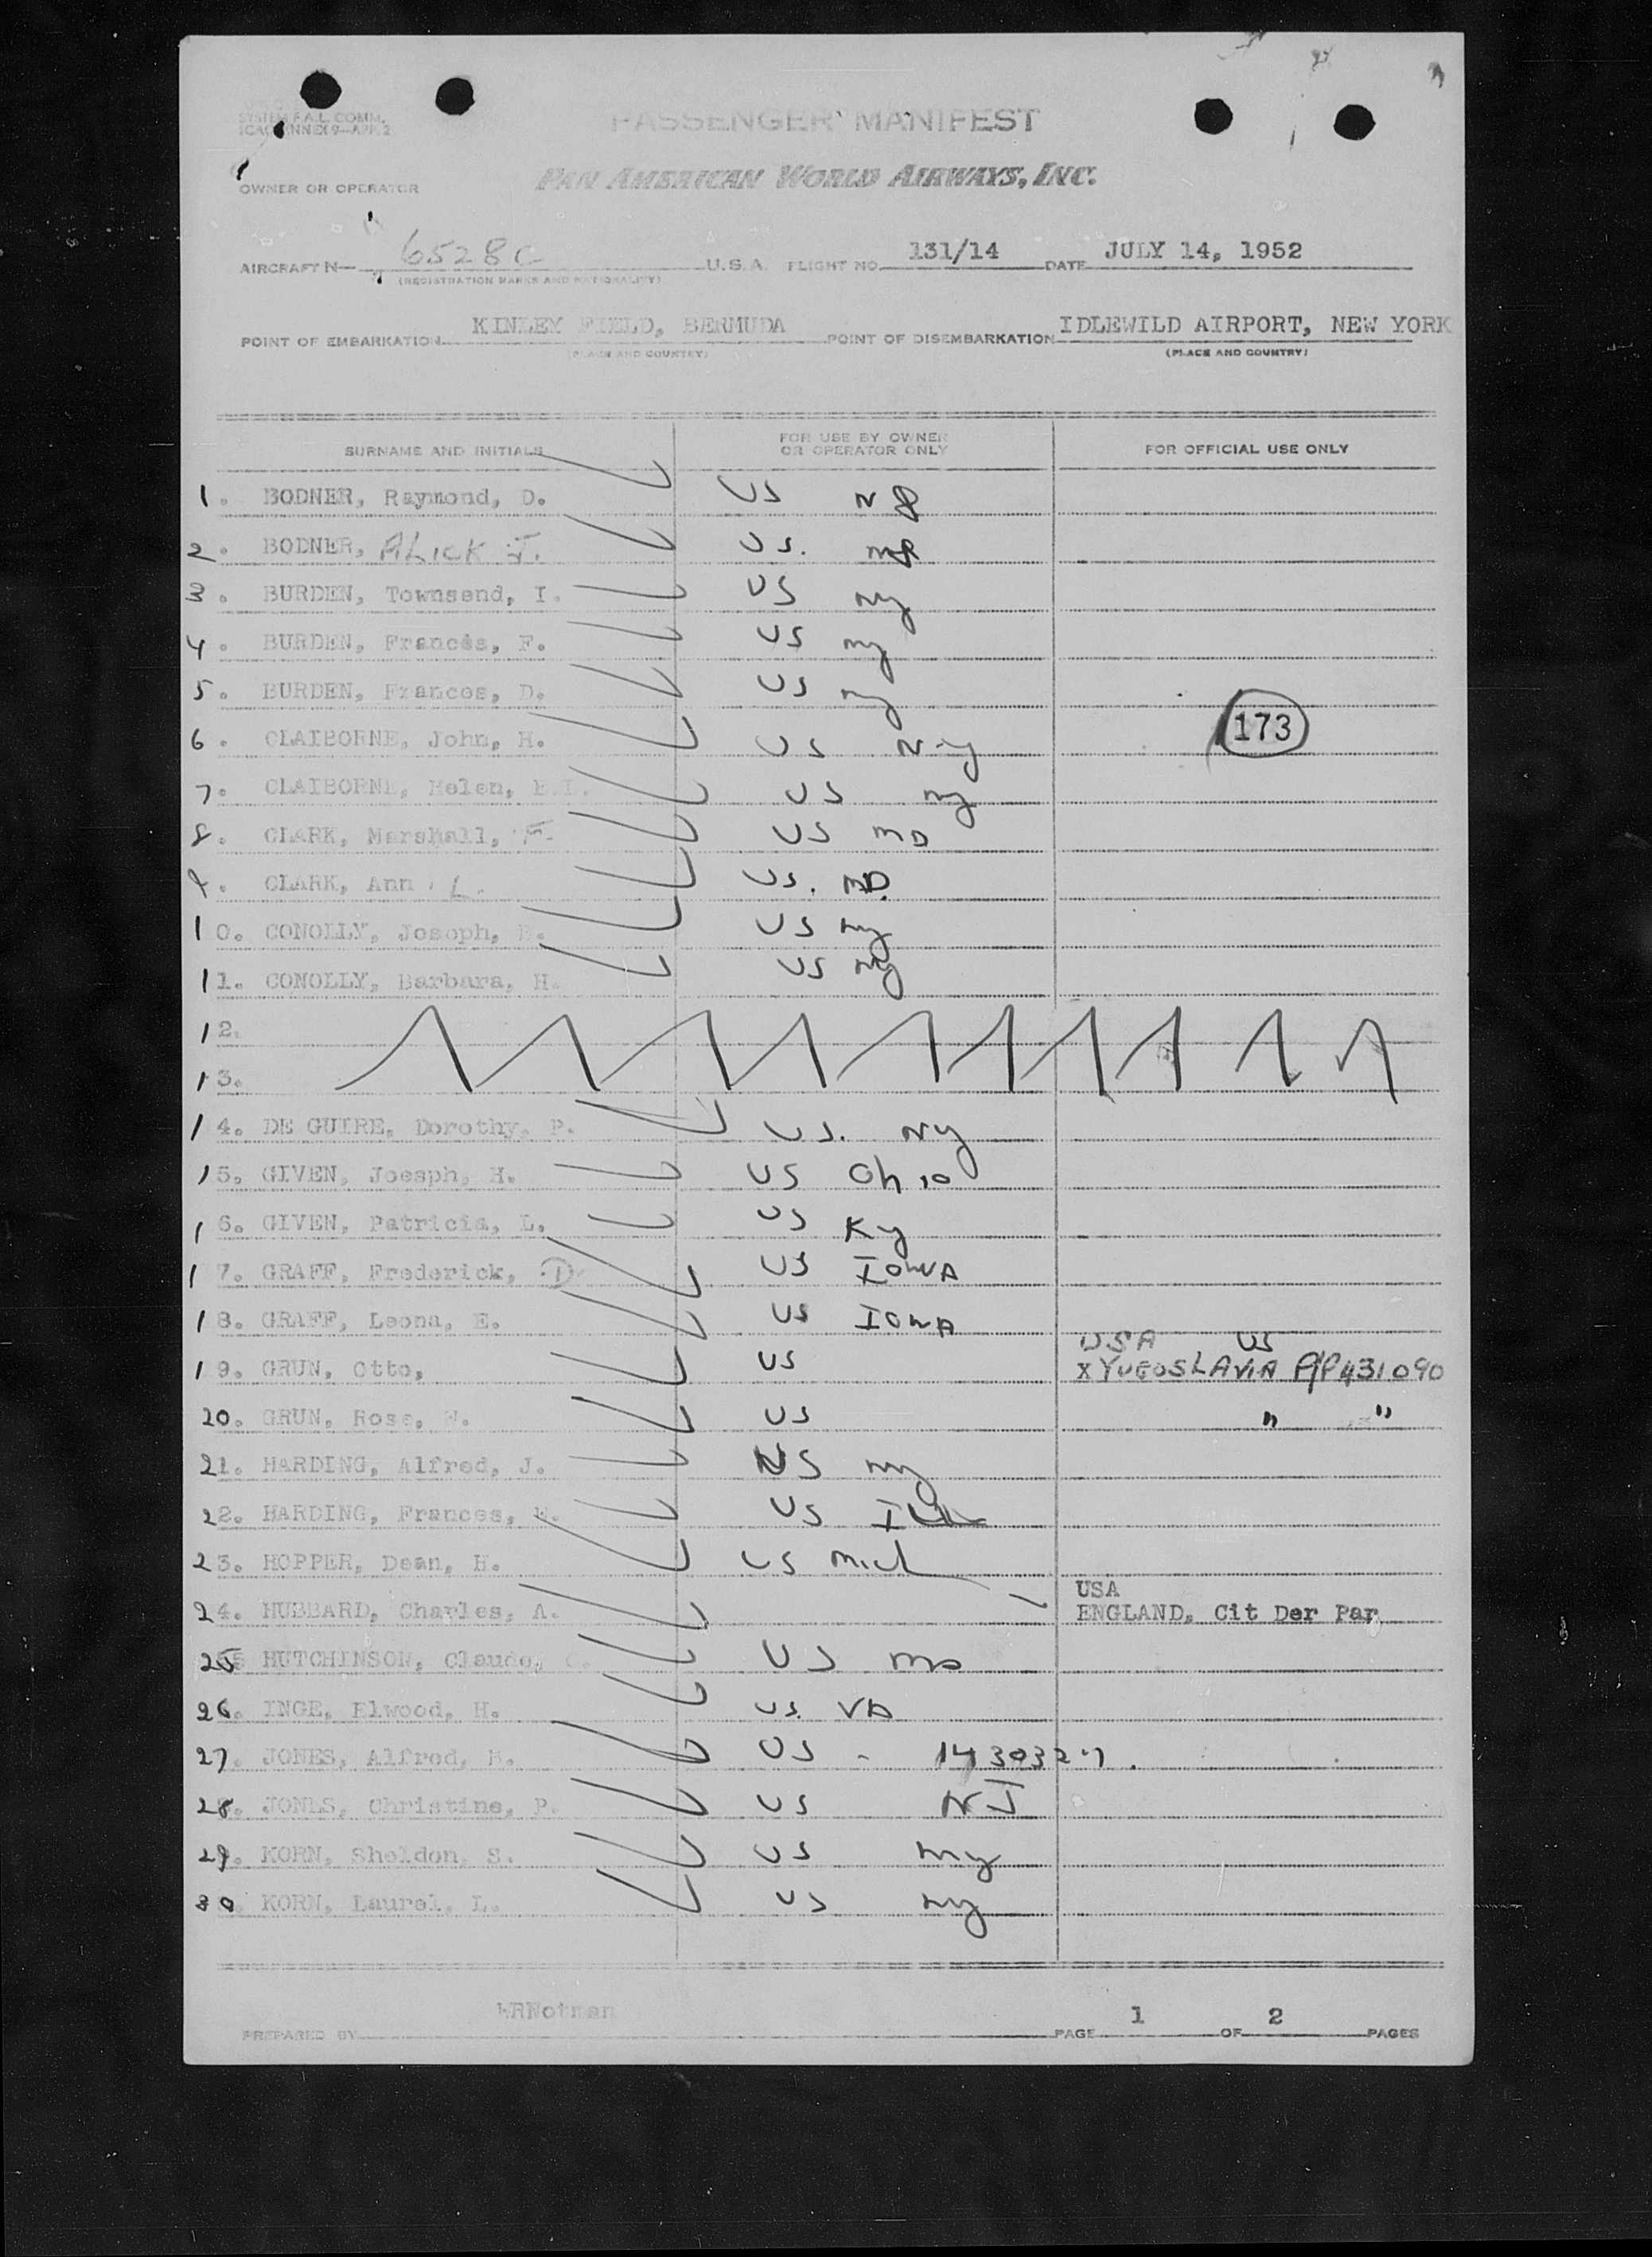 SYSTEM F.A.L. COMM.
PASSENGER MANIFEST
OWNER OR OPERATOR PAN AMERICAN WORLD AIRWAYS, INC.
AIRCRAFT N— 6528C U.S.A. FLIGHT NO. 131/14 DATE JULY 14, 1952
(REGISTRATION MARKS AND NATIONALITY)
POINT OF EMBARKATION KINLEY FIELD, BERMUDA POINT OF DISEMBARKATION IDLEWILD AIRPORT, NEW YORK
(PLACE AND COUNTRY) (PLACE AND COUNTRY)
SURNAME AND INITIALS FOR USE BY OWNER OR OPERATOR ONLY FOR OFFICIAL USE ONLY
1. BODNER, Raymond, D. US
2. BODNER, ALICK J. US.
3. BURDEN, Townsend, I. US ny
4. BURDEN, Frances, F. US ny
5. BURDEN, Frances, D. US ny
173
6. CLAIBORNE, John, H. US N-y
7. CLAIBORNE, Helen, US ny
8. CLARK, Marshall, F. US MD
9. CLARK, Ann L. US. MD.
10. CONOLLY, Joseph, US ny
11. CONOLLY, Barbara, H. US ny
12.
13.
14. DE GUIRE, Dorothy, P. US. Ny
15. GIVEN, Joesph, H. US Ohio
16. GIVEN, Patricia, L. US Ky
17. GRAFF, Frederick, US IOWA
18. GRAFF, Leona, E. US IOWA
USA US
19. GRUN, Otto, US X YUGOSLAVIA P/P 431090
20. GRUN, Rose, W. US " "
21. HARDING, Alfred, J. US ny
22. HARDING, Frances, US Ill
23. HOPPER, Dean, H. US Mich
USA
24. HUBBARD, Charles, A. ENGLAND, Cit Der Par
25 HUTCHINSON, Claude, US Mo
26. INGE, Elwood, H. US. VA
27. JONES, Alfred, US - 1430327.
28. JONES, Christine, P. US NJ
29. KORN, Sheldon, S. US ny
30 KORN, Laurel, L. US ny
PREPARED BY WRNotman PAGE 1 OF 2 PAGES